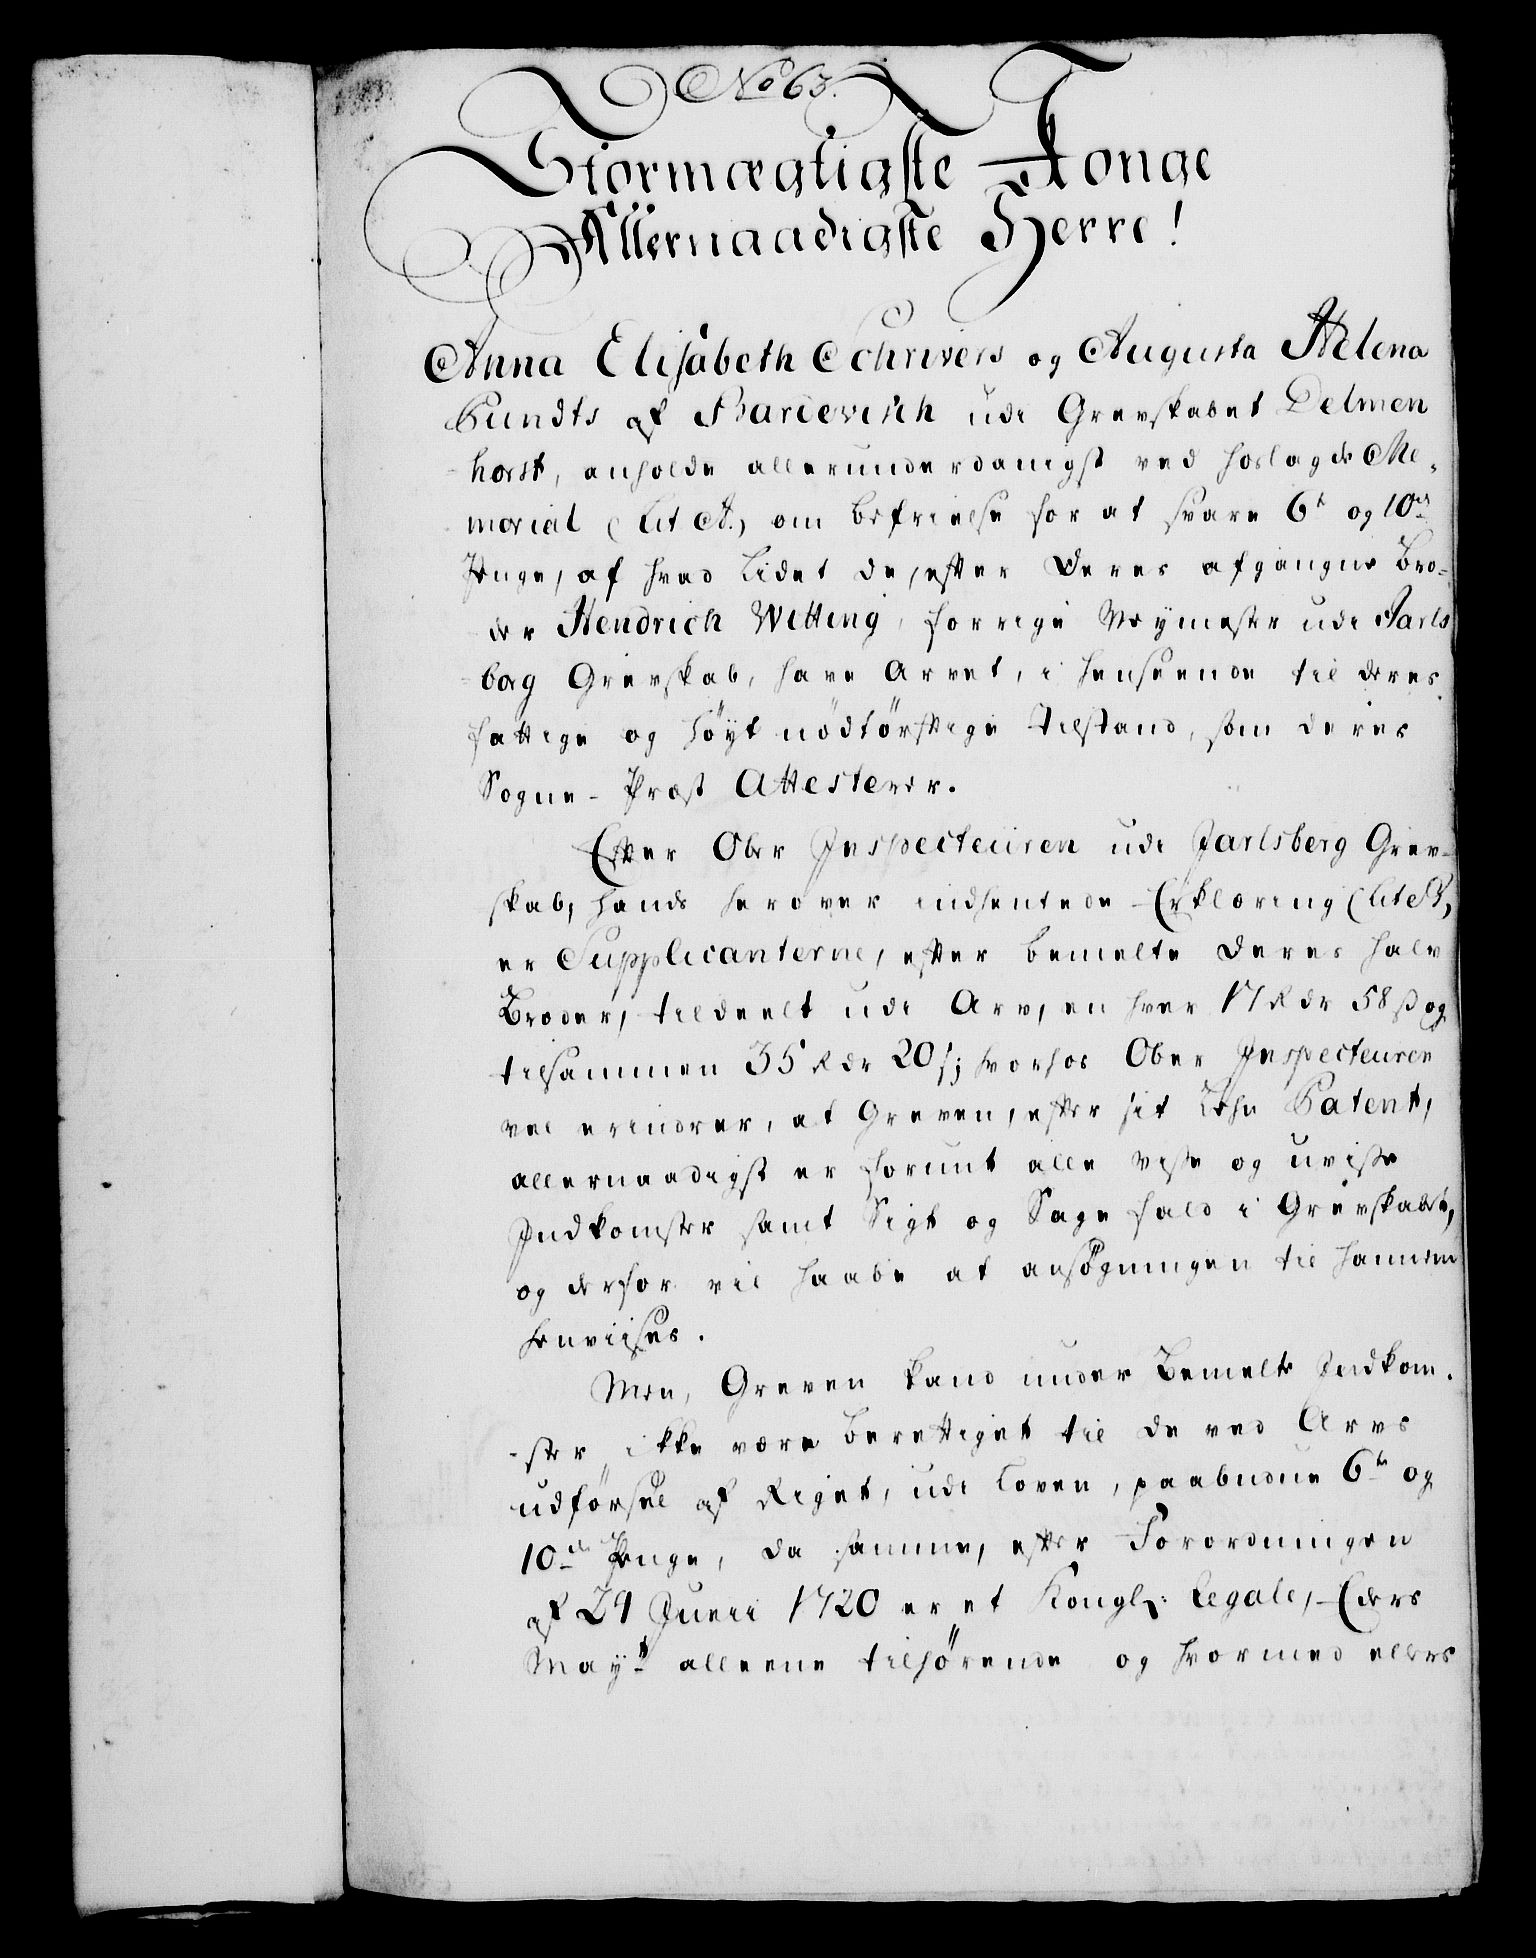 No 63.
Stormægtigste Konge
Allernaadigste Herre!
Anna Elisabeth Schrivers og Augusta Helena
Pundts af Bardewisch udi Grevskabet Delmen
horst, anholde allerunderdanigst ved hoslagde Me-
morial (Lit A.) om befrielse for at svare 6te og 10de
Penge, af hvad Lidet de, efter deres afgangne Bro-
der Hendrich Witting, forrige Veymester udi Jarls
berg Grevskab, have Arvet, i henseende til deres
fattige og höyt nödtörftige tilstand, som deres
Sogne-Præst Attesterer.
Efter Ober Inspecteuren udi Jarlsberg Grev-
skab, hands herover indhentede Erklæring (Lit B,
er Supplicanterne, efter bemelte deres halv
Broder, tildeelt udi Arv, en hver 17 Rdr 58 ß og
tilsammen 35 Rdr 20 ß; hvorhos Ober Inspecteuren
vel erindrer, at Greven, efter sit Lehn Patent,
allernaadigst er forunt alle visse og uvisse
Indkomster samt Sigt og Sage fald i Grevskabet,
og derfor vil haabe at ansögningen til hannem
henviises.
Men, Greven kand under Bemelte Indkom-
ster ikke være berettiget til de ved Arvs
udförsel af Riget, udi Loven, paabudne 6te og
10de Penge, da samme, efter Forordningen
af 24 Junii 1720 er et Kongl: Regale, Eders
Mayt alleene tilhörende og hvormed ellers